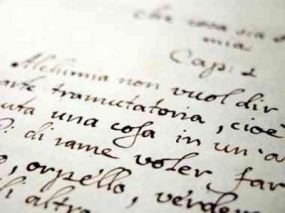 che cosa sia
mia:
Cap: 1
Alchimia non vuol dir
arte tramutatoria, cioè
uta una cosa in un'a
di rame voler far
e, orpello, verder
di altr